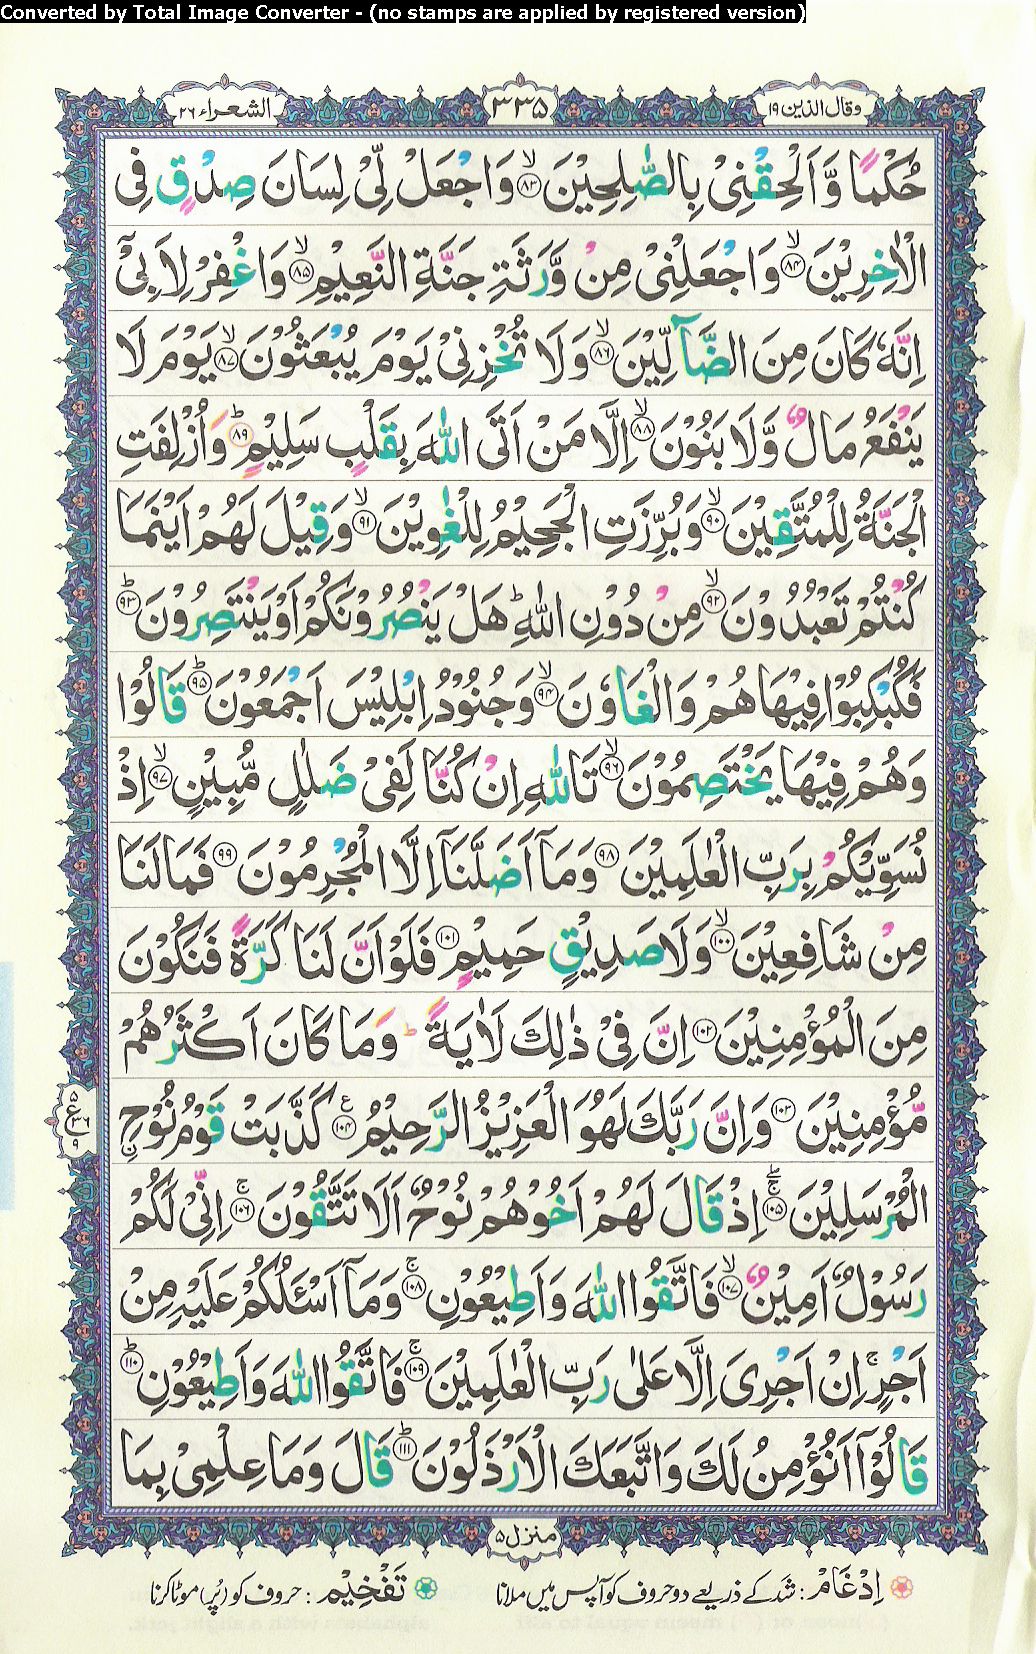 Converted by Total Image Converter - (no stamps are applied by registered version)
وقال الذین ۱۹
۳۳۵
الشعراء ۲۶
حُكْمًا وَّ اَلْحِقْنِیْ بِالصّٰلِحِیْنَ ﴿ۙ۸۳﴾ وَ اجْعَلْ لِّیْ لِسَانَ صِدْقٍ فِی
الْاٰخِرِیْنَ ﴿ۙ۸۴﴾ وَ اجْعَلْنِیْ مِنْ وَّرَثَةِ جَنَّةِ النَّعِیْمِ ﴿ۙ۸۵﴾ وَ اغْفِرْ لِاَبِیْۤ
اِنَّهٗ كَانَ مِنَ الضَّآلِّیْنَ ﴿ۙ۸۶﴾ وَ لَا تُخْزِنِیْ یَوْمَ یُبْعَثُوْنَ ﴿ۙ۸۷﴾ یَوْمَ لَا
یَنْفَعُ مَالٌ وَّ لَا بَنُوْنَ ﴿ۙ۸۸﴾ اِلَّا مَنْ اَتَی اللّٰهَ بِقَلْبٍ سَلِیْمٍ ﴿ؕ۸۹﴾ وَ اُزْلِفَتِ
الْجَنَّةُ لِلْمُتَّقِیْنَ ﴿ۙ۹۰﴾ وَ بُرِّزَتِ الْجَحِیْمُ لِلْغٰوِیْنَ ﴿ۙ۹۱﴾ وَ قِیْلَ لَهُمْ اَیْنَمَا
كُنْتُمْ تَعْبُدُوْنَ ﴿ۙ۹۲﴾ مِنْ دُوْنِ اللّٰهِ ؕ هَلْ یَنْصُرُوْنَكُمْ اَوْ یَنْتَصِرُوْنَ ﴿ؕ۹۳﴾
فَكُبْكِبُوْا فِیْهَا هُمْ وَ الْغَاوٗنَ ﴿ۙ۹۴﴾ وَ جُنُوْدُ اِبْلِیْسَ اَجْمَعُوْنَ ﴿ؕ۹۵﴾ قَالُوْا
وَ هُمْ فِیْهَا یَخْتَصِمُوْنَ ﴿ۙ۹۶﴾ تَاللّٰهِ اِنْ كُنَّا لَفِیْ ضَلٰلٍ مُّبِیْنٍ ﴿ۙ۹۷﴾ اِذْ
نُسَوِّیْكُمْ بِرَبِّ الْعٰلَمِیْنَ ﴿۹۸﴾ وَ مَاۤ اَضَلَّنَاۤ اِلَّا الْمُجْرِمُوْنَ ﴿۹۹﴾ فَمَا لَنَا
مِنْ شَافِعِیْنَ ﴿ۙ۱۰۰﴾ وَ لَا صَدِیْقٍ حَمِیْمٍ ﴿۱۰۱﴾ فَلَوْ اَنَّ لَنَا كَرَّةً فَنَكُوْنَ
مِنَ الْمُؤْمِنِیْنَ ﴿۱۰۲﴾ اِنَّ فِیْ ذٰلِكَ لَاٰیَةً ؕ وَ مَا كَانَ اَكْثَرُهُمْ
مُّؤْمِنِیْنَ ﴿۱۰۳﴾ وَ اِنَّ رَبَّكَ لَهُوَ الْعَزِیْزُ الرَّحِیْمُ ﴿۱۰۴﴾ كَذَّبَتْ قَوْمُ نُوْحِ
۵
ع ۳۶
۹
الْمُرْسَلِیْنَ ﴿ۚۖ۱۰۵﴾ اِذْ قَالَ لَهُمْ اَخُوْهُمْ نُوْحٌ اَلَا تَتَّقُوْنَ ﴿ۚ۱۰۶﴾ اِنِّیْ لَكُمْ
رَسُوْلٌ اَمِیْنٌ ﴿ۙ۱۰۷﴾ فَاتَّقُوا اللّٰهَ وَ اَطِیْعُوْنِ ﴿ۚ۱۰۸﴾ وَ مَاۤ اَسْـَٔلُكُمْ عَلَیْهِ مِنْ
اَجْرٍ ۚ اِنْ اَجْرِیَ اِلَّا عَلٰی رَبِّ الْعٰلَمِیْنَ ﴿ۚ۱۰۹﴾ فَاتَّقُوا اللّٰهَ وَ اَطِیْعُوْنِ ﴿ؕ۱۱۰﴾
قَالُوْۤا اَنُؤْمِنُ لَكَ وَ اتَّبَعَكَ الْاَرْذَلُوْنَ ﴿ؕ۱۱۱﴾ قَالَ وَ مَا عِلْمِیْ بِمَا
منزل ۵
اِدْغَامْ: شَد کے ذریعے دو حروف کو آپس میں ملانا تَفْخِیْم: حروف کو (پُر) موٹا کرنا